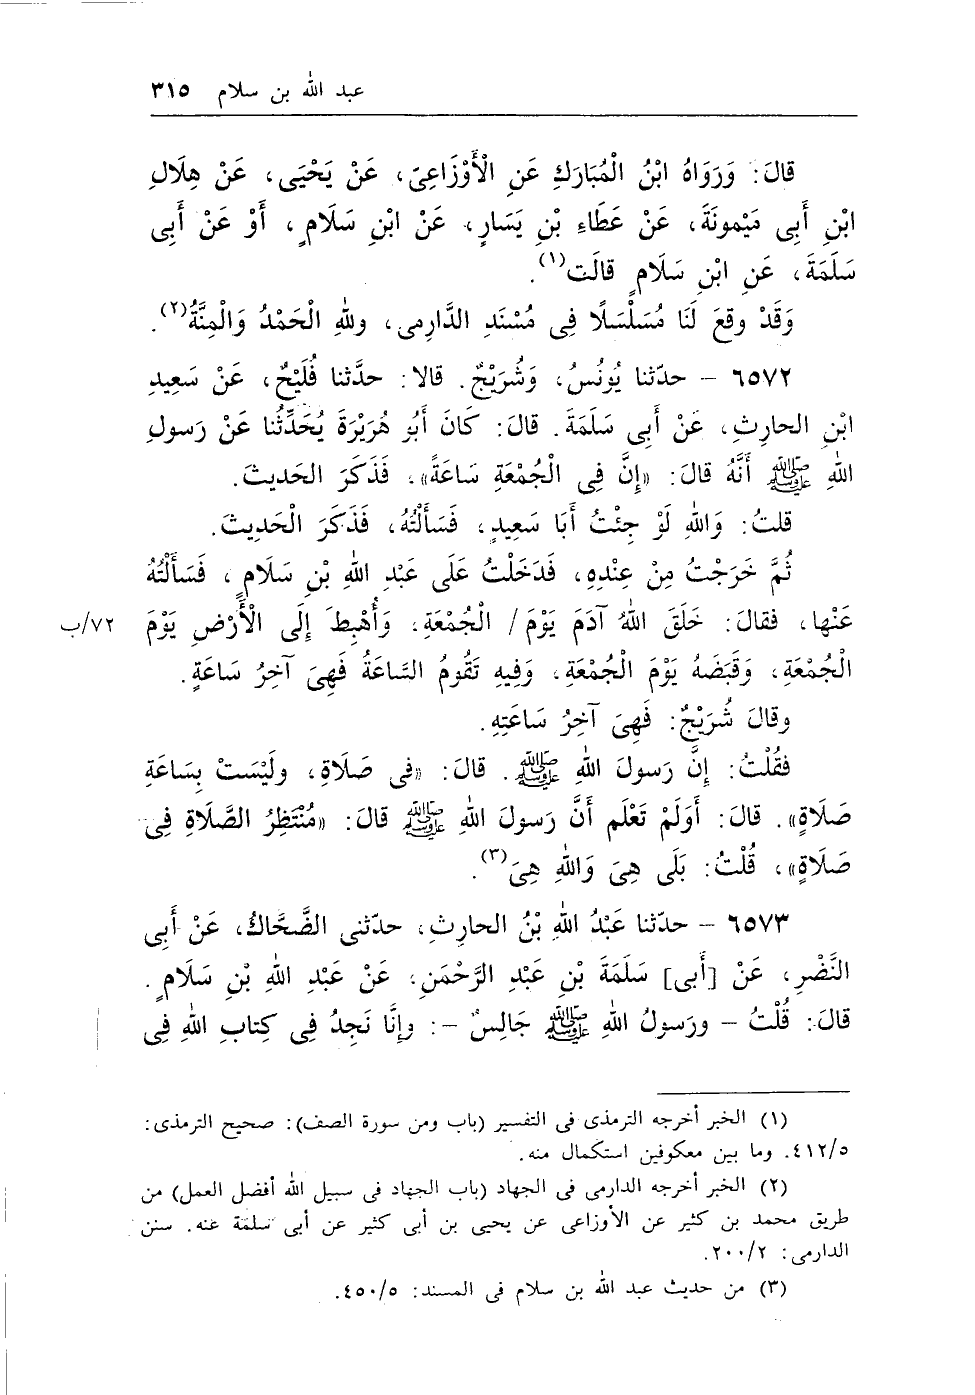 عبد الله بن سلام ٣١٥
قالَ: وَرَوَاهُ ابْنُ الْمُبَارَكِ عَنِ الْأَوْزَاعِىّ، عَنْ يَحْيَى، عَنْ هِلَالِ
ابْنِ أَبِى مَيْمونَةَ، عَنْ عَطَاءِ بْنِ يَسَارٍ، عَنْ ابْنِ سَلَامٍ، أَوْ عَنْ أَبِى
سَلَمَةَ، عَنِ ابْنِ سَلَامٍ قالَت(١).
وَقَدْ وقعَ لَنَا مُسَلْسَلًا فِى مُسْنَدِ الدَّارِمى، وللهِ الْحَمْدُ وَالْمِنَّةُ(٢).
٦٥٧٢ – حدّثنا يُونُسُ، وَشُرَيْحٌ. قالا: حدَّثنا فُلَيْحٌ، عَنْ سَعِيدِ
ابْنِ الحارِثِ، عَنْ أَبِى سَلَمَةَ. قالَ: كَانَ أَبُو هُرَيْرَةَ يُحَدِّثُنا عَنْ رَسولِ
اللهِ ﷺ أَنَّهُ قالَ: «إِنَّ فِى الْجُمْعَةِ سَاعَةً»، فَذَكَرَ الحَديثَ.
قلتُ: وَاللهِ لَوْ جِئْتُ أَبَا سَعِيدٍ، فَسَأَلْتُهُ، فَذَكَرَ الْحَدِيثَ.
ثُمَّ خَرَجْتُ مِنْ عِنْدِهِ، فَدَخَلْتُ عَلَى عَبْدِ اللهِ بْنِ سَلَامٍ، فَسَأَلْتُهُ
عَنْها، فقالَ: خَلَقَ اللهُ آدَمَ يَوْمَ / الْجُمْعَةِ، وَأُهْبِطَ إِلَى الْأَرْضِ يَوْمَ ٧٢/ب
الْجُمْعَةِ، وَقَبَضَهُ يَوْمَ الْجُمْعَةِ، وَفِيهِ تَقُومُ السَّاعَةُ فَهِىَ آخِرُ سَاعَةٍ.
وقالَ شُرَيْحٌ: فَهِىَ آخِرُ سَاعَتِهِ.
فقُلْتُ: إِنَّ رَسولَ اللهِ ﷺ. قالَ: «فى صَلَاةِ، ولَيْسَتْ بِسَاعَةِ
صَلَاةٍ». قالَ: أَوَلَمْ تَعْلَم أَنَّ رَسولَ اللهِ ﷺ قالَ: «مُنْتَظِرُ الصَّلَاةِ فِى
صَلَاةٍ»، قُلْتُ: بَلَى هِىَ وَاللهِ هِىَ(٣).
٦٥٧٣ – حدّثنا عَبْدُ اللهِ بْنُ الحارِثِ، حدّثنى الضَّحَّاكُ، عَنْ أَبِى
النَّضْرِ، عَنْ [أَبى] سَلَمَةَ بْنِ عَبْدِ الرَّحْمَنِ، عَنْ عَبْدِ اللهِ بْنِ سَلَامٍ.
قالَ: قُلْتُ – ورَسولُ اللهِ ﷺ جَالِسٌ –: وإِنَّا نَجِدُ فِى كِتابِ اللهِ فِى
(١) الخبر أخرجه الترمذى فى التفسير (باب ومن سورة الصف): صحيح الترمذى:
٤١٢/٥. وما بين معكوفين استكمال منه.
(٢) الخبر أخرجه الدارمى فى الجهاد (باب الجهاد فى سبيل الله أفضل العمل) من
طريق محمد بن كثير عن الأوزاعى عن يحيى بن أبى كثير عن أبى سلمة عنه. سنن
الدارمى: ٢٠٠/٢.
(٣) من حديث عبد الله بن سلام فى المسند: ٤٥٠/٥.